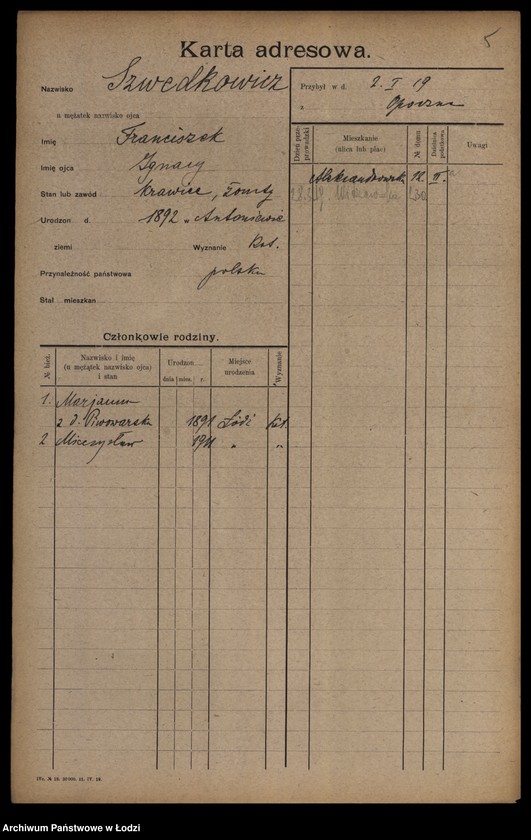 5
Karta adresowa.
Nazwisko Szwedkowicz
u mężatek nazwisko ojca
Imię Franciszek
Imię ojca Ignacy
Stan lub zawód krawiec, żonaty
Urodzon d. 1892 w Antoniowie
ziemi Wyznanie Kat.
Przynależność państwowa polska
Stał mieszkan
Przybył w d. 2. I 19
z Opoczna
Dzień przeprowadzki
Mieszkanie
(ulica lub plac)
№ domu
Dzielnica podatkowa
Uwagi
Aleksandrowsk 12. II.
130.
Członkowie rodziny.
№ bież.
Nazwisko i imię
(u mężątek nazwisko ojca)
i stan
Urodzon
dnia mies. r.
Miejsce
urodzenia
Wyznanie
1. Marjanna
z d. Piwowarska 1891 Łódź Kat.
2 Mieczysław 1911 " "
Archiwum Państwowe w Łodzi